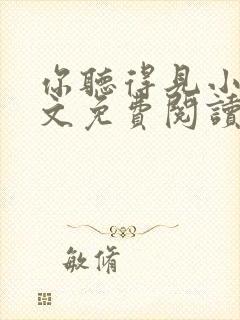 你聽得見小
文免費閱讀
敏脩